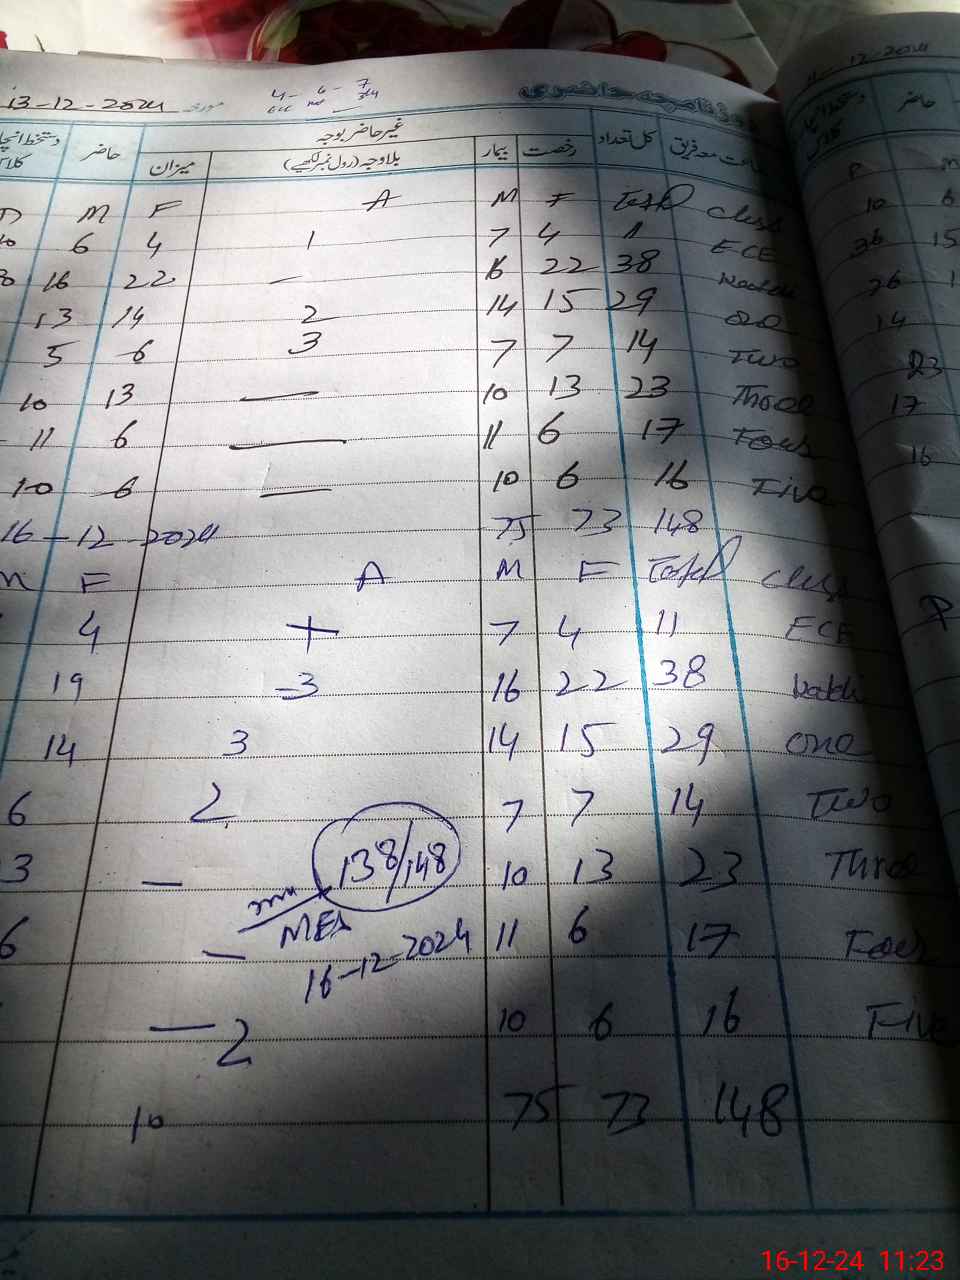 13-12-2024 مورخہ
4- 6- 7
روزنامچہ حاضری
11-12-2024
حاضر میزان غیر حاضر بوجہ کل تعداد
بلاوجہ (رول نمبر لکھیے) بیمار رخصت
M F A M F Total Class
6 4 1 7 4 11 ECE
16 22 — 16 22 38
13 14 2 14 15 29 One
5 6 3 7 7 14 Two
10 13 — 10 13 23 Three
11 6 — 11 6 17 Four
10 6 — 10 6 16 Five
16-12-2024 75 73 148
M F A M F Total Class
4 + 7 4 11 ECE
19 -3 16 22 38 Kachi
14 3 14 15 29 One
6 2 7 7 14 Two
138/148
3 — 10 13 23 Three
MEA
6 — 11 6 17 Four
16-12-2024
— 2 10 6 16 Five
10 75 73 148
P
10 6
36 15
26 1
14
23
17
16
P
16-12-24 11:23